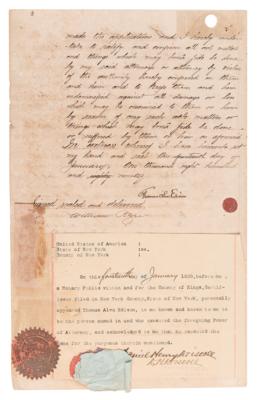 made this application and I hereby under-
take to ratify and confirm all acts matters
and things which may bona fide be done
by my said attorneys or attorney by virtue
of the authority hereby conferred on them
and him and to keep them and him
indemnified against all damage or loss
which may be occasioned to them or him
by reason of any such acts matters or
things which may bona fide be done
or suffered by them or him as aforesaid
In witness whereof I have hereunto set
my hand and seal the fourteenth day of
January, One thousand eight hundred
and ninety
Signed, sealed and delivered
William
United States of America :
State of New York :ss.
County of New York :
On this fourteenth of January 1890, before me,
a Notary Public within and for the County of Kings, Certif-
icate filed in New York County, State of New York, personally
appeared Thomas Alva Edison, to me known and known to me to
be the person named in and who executed the foregoing Power
of Attorney, and acknowledged to me that he executed the
same for the purposes therein mentioned.
Daniel Henry Driscoll